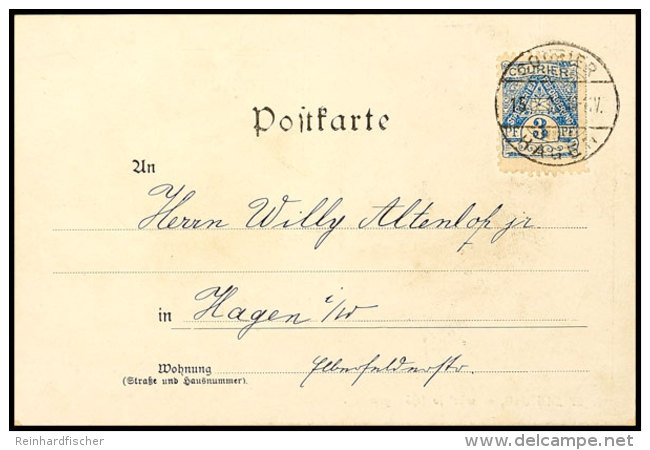 COURIER
COURIER
15.
V.
3
PF PF
HAGEN
Postkarte
An
Herrn Willy Altenloh jr
in Hagen i/W
Wohnung Elberfelderstr.
(Straße und Hausnummer).
Reinhardfischer
delcampe.net